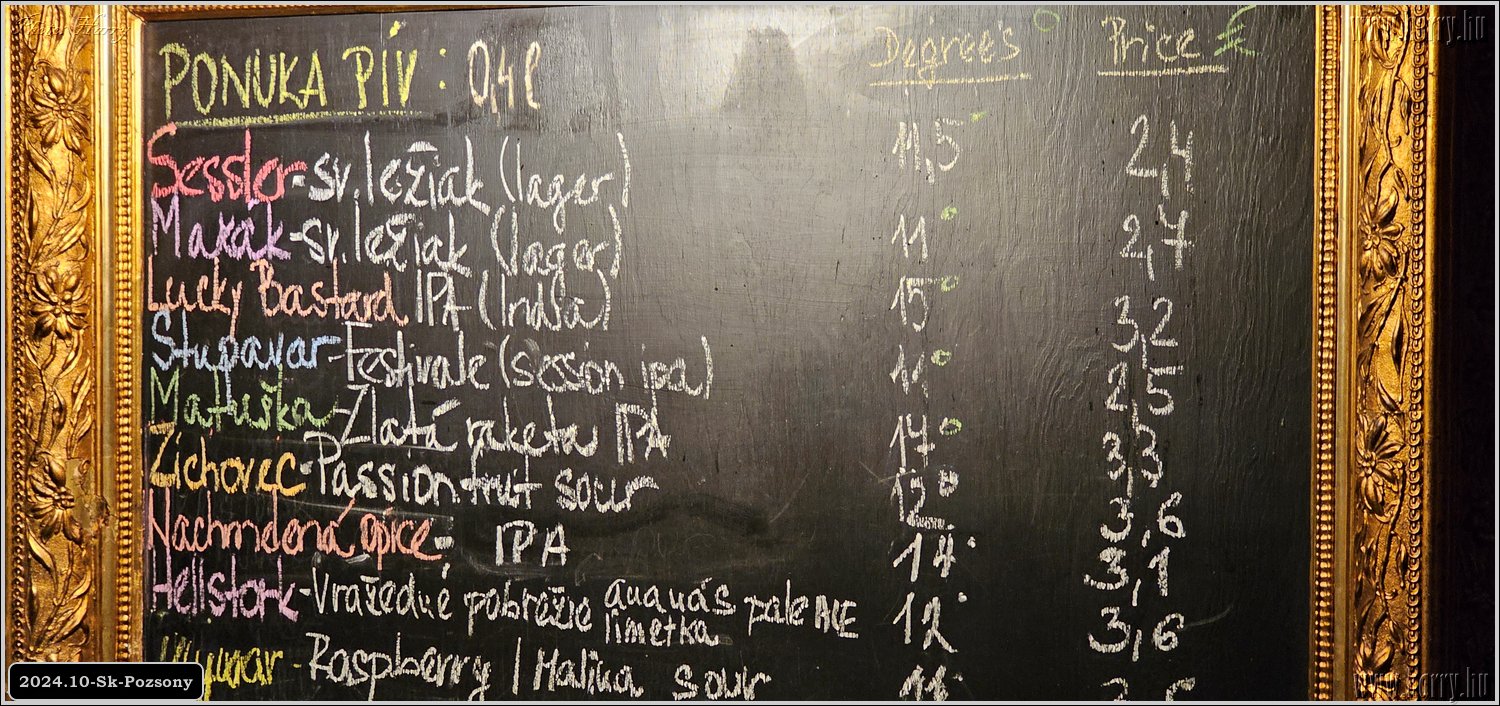 Photo: Harry
www.harry.hu
PONUKA PÍV : 0,4l Degree's ° Price €
Sessler-sv.ležiak (lager) 11,5° 2,4
Makák-sv.ležiak (lager) 11° 2,7
Lucky Bastard IPA (India) 15° 3,2
Stupavar-Festivale (session ipa) 11° 2,5
Matuška-Zlatá raketa IPA 17° 3,3
Zichovec-Passion fruit sour 12° 3,6
Nachmelená opice- IPA 14° 3,1
Hellstork-Vražedné pobrežie ananás limetka pale ALE 12° 3,6
- Raspberry / Malina sour 11°
2024.10-Sk-Pozsony
www.harry.hu